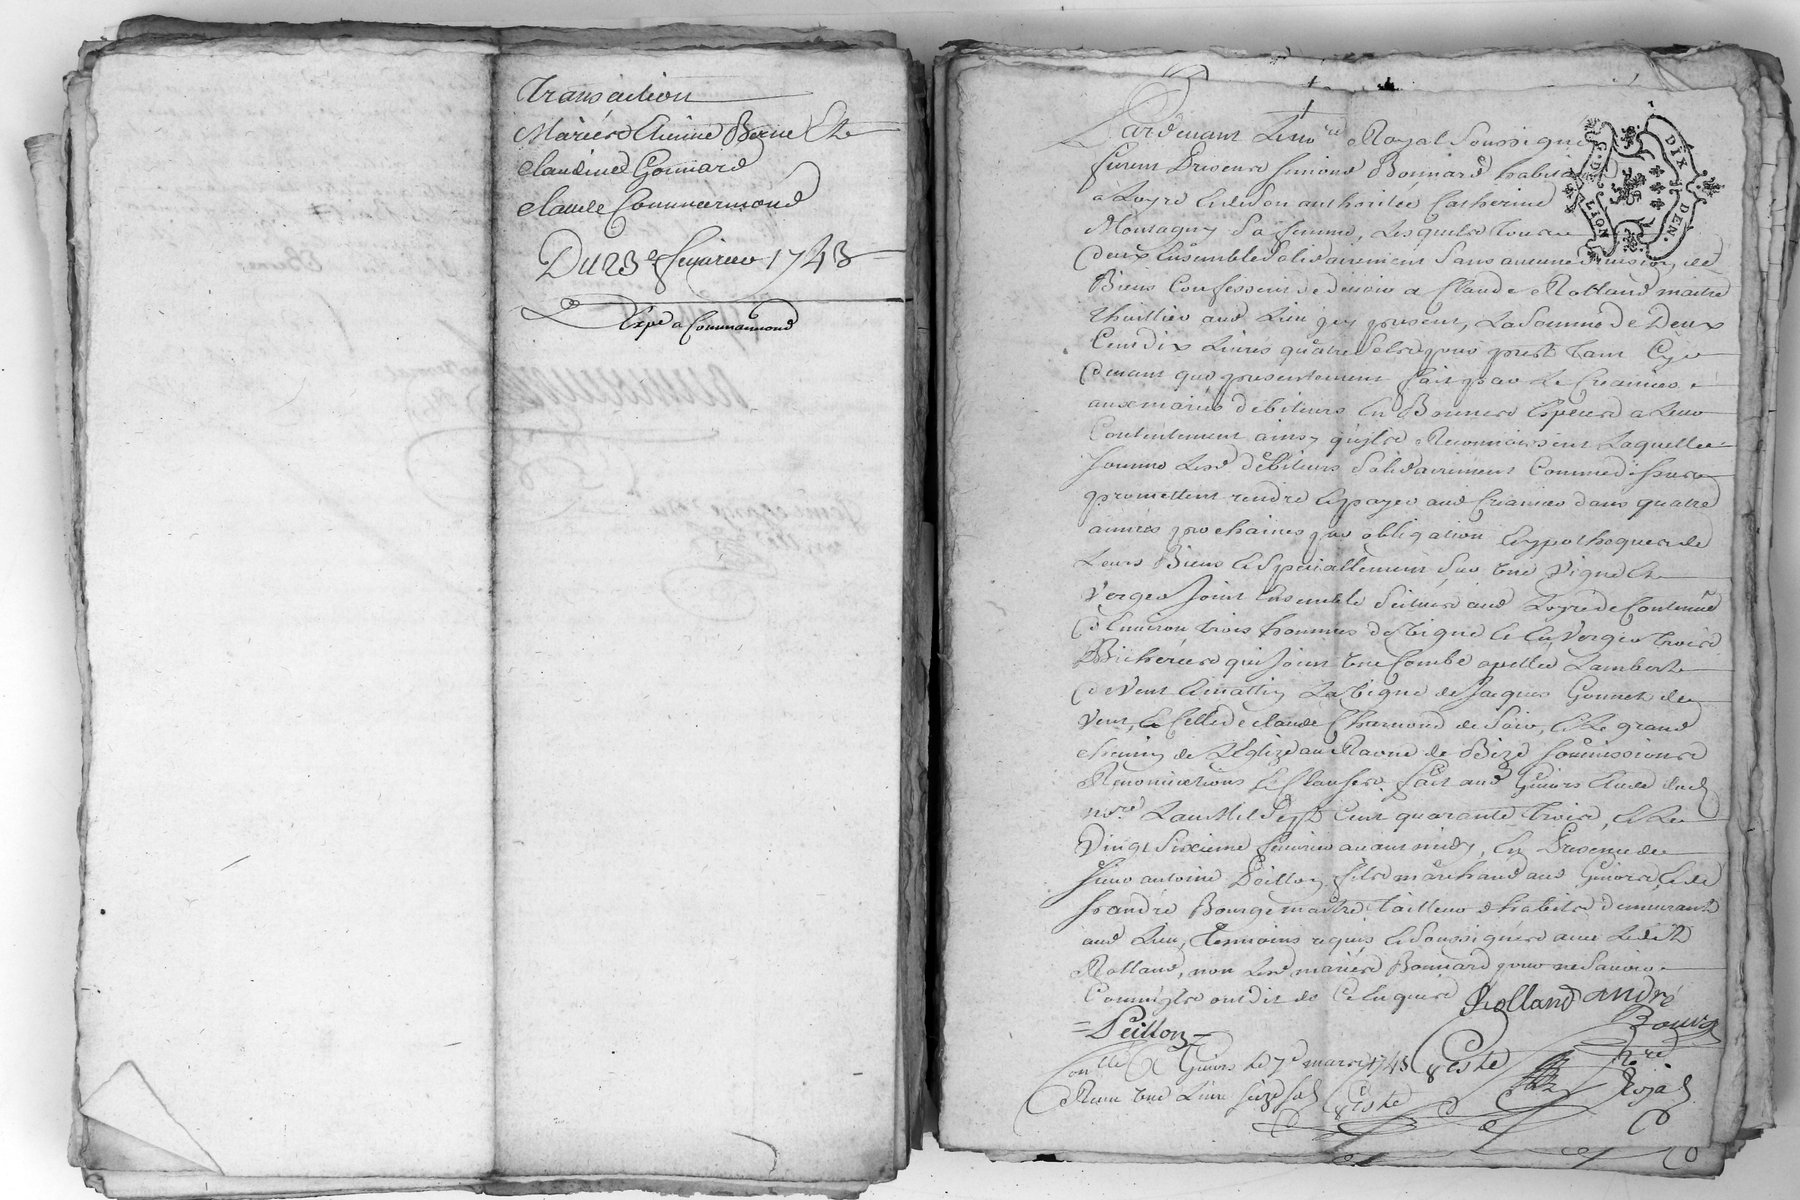 Transaction
Mariés Etienne Berne Et
Claudine Gonnard
Claude Commarmond
Du 23e feuvrier 1743
Expé a Commarmond
Pardevant Le no.re Royal Soussigné
furent Presens Simond Bonnard habitant
a Loyre et de Son authorité Catherine
Montagny Sa femme, Lesquels Tous
deux Ensemble Solidairement Sans aucune division de
Biens Confessent devoir a Claude Rolland maitre
thuillier aud Lieu icy present, La Somme de Deux
Cent dix Livres quatre Sols pour prest tant Cy
devant que presentement fait par Le Creancier
aux mariés debiteurs En Bonnes Especes a Leur
Contentement ainsy qu'ils Reconnoissent Laquelle
Somme Lesd debiteurs Solidairement Comme dessus
promettent rendre et payer aud Creancier dans quatre
années prochaines par obligation et ypotheques de
Leurs Biens et Speciallement Sur une vigne Et
Verger Joint Ensemble Scitués aud Loyre de Contenue
d'Environ trois hommes de vigne et Le Verger trois
Bicherées qui Joint une Combe apellée Lambert
de Vent et matin La vigne de Jacques Gonnet de
Vent, et Celle de Claude Charmond de Soir, et Le grand
chemin de L'Eglize au de Bize Soumissions
Renonciations et Clauses. fait aud Givors Etude dud
no.re L'an Mil Sept Cent quarante trois, et Le
Vingt Sixieme feuvrier avant midy, En Presence de
Sieur antoine Peillon fils marchand aud Givors, et de
Sr andré Bourge maitre tailleur d'habits demeurant
aud Lieu, Temoins requis et Soussignés avec Ledit
Rolland, non Lesd mariés Bonnard pour ne Savoir
Comme ils ont dit de Ce Enquis
Rolland andré
Bourge
= Peillon =
Conllé A Givors Le 7e mars 1743
Reçu une Livre Seize Sols
no.re
Royal
G. DE LION
DIX DEN.